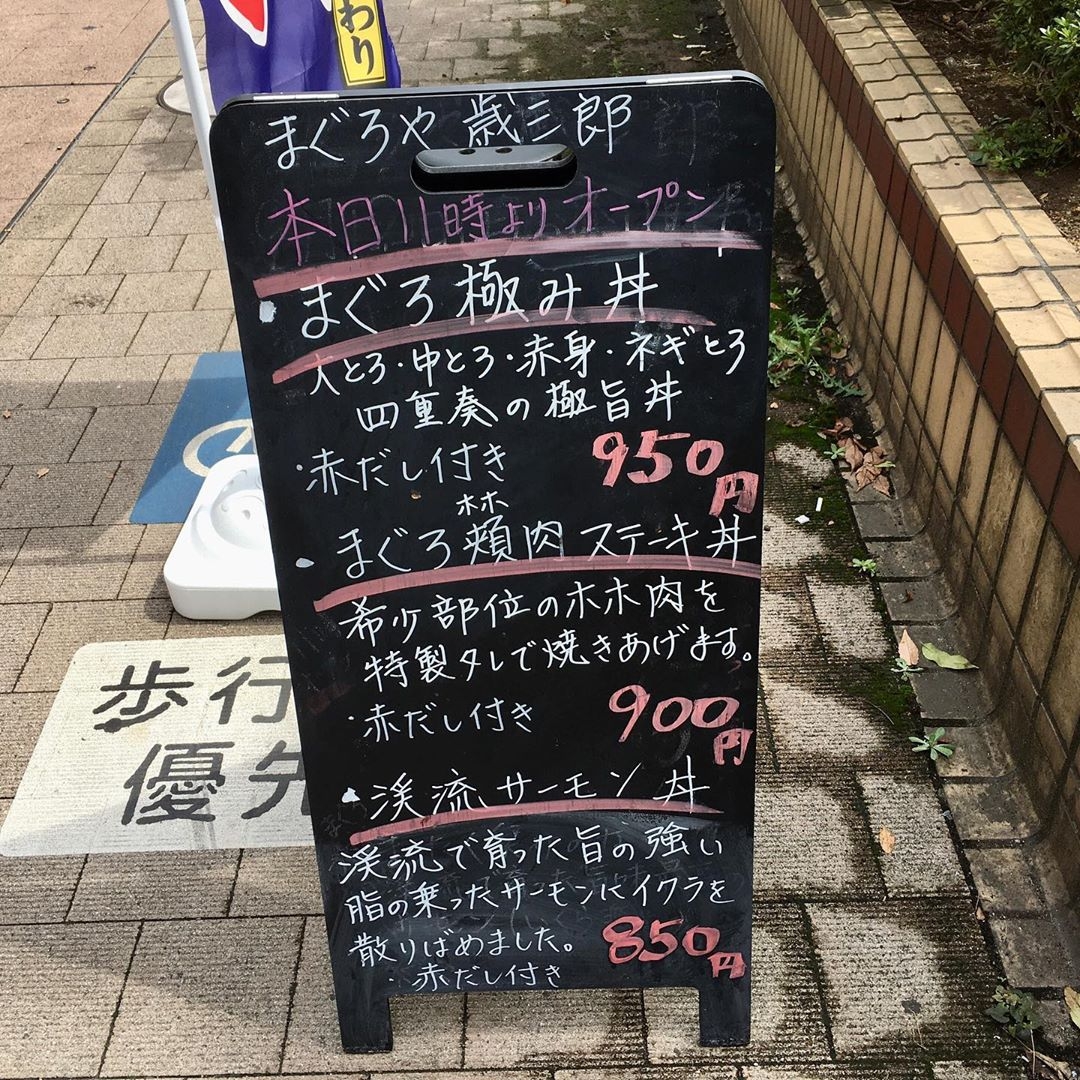 わり
まぐろや 歳三郎
本日11時よりオープン
・まぐろ極み丼
大とろ・中とろ・赤身・ネギとろ
四重奏の極旨丼
・赤だし付き 950円
ホホ
・まぐろ頬肉ステーキ丼
希少部位のホホ肉を
特製タレで焼きあげます。
・赤だし付き 900円
・渓流サーモン丼
渓流で育った旨の強い
脂の乗ったサーモンにイクラを
散りばめました。 850円
・赤だし付き
歩行
優先